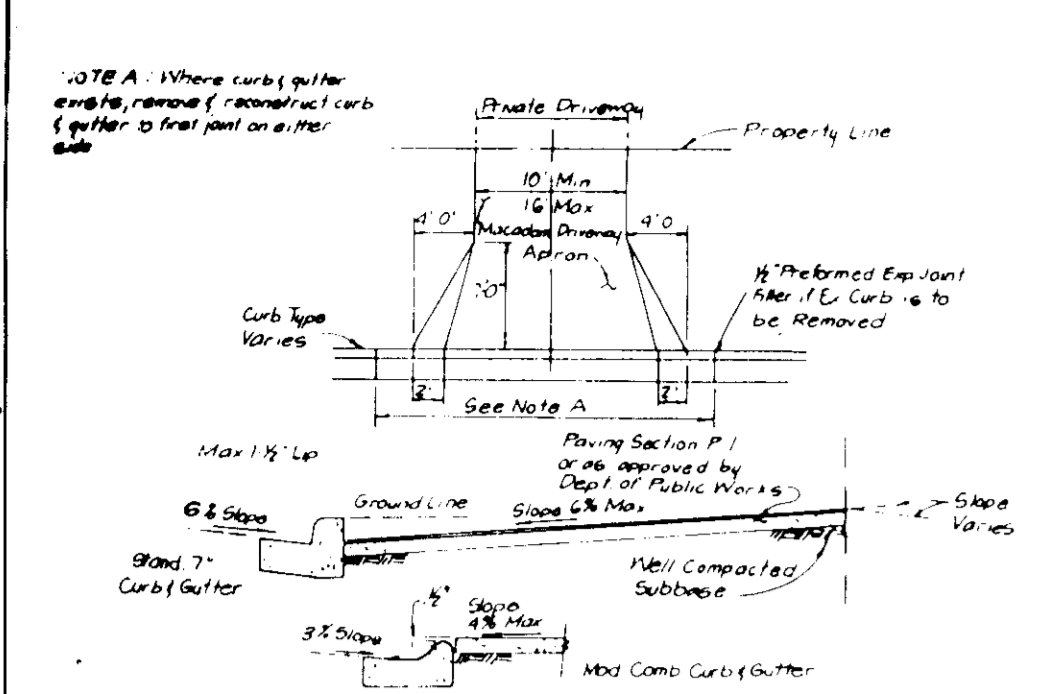 NOTE A : Where curb & gutter
exists, remove & reconstruct curb
& gutter to first joint on either
side
Private Driveway
Property Line
10' Min
16' Max
4'0"
4'0
Macadam Driveway
Apron
½" Preformed Exp Joint
Filler if Ex Curb is to
be Removed
Curb Type
Varies
2'
2'
See Note A
Max 1-½" Lip
Paving Section P 1
or as approved by
Dept. of Public Works
6% Slope
Ground Line
Slope 6% Max
Slope
Varies
Stand. 7"
Curb & Gutter
Well Compacted
Subbase
½"
Slope
4% Max
3% Slope
Mod Comb Curb & Gutter